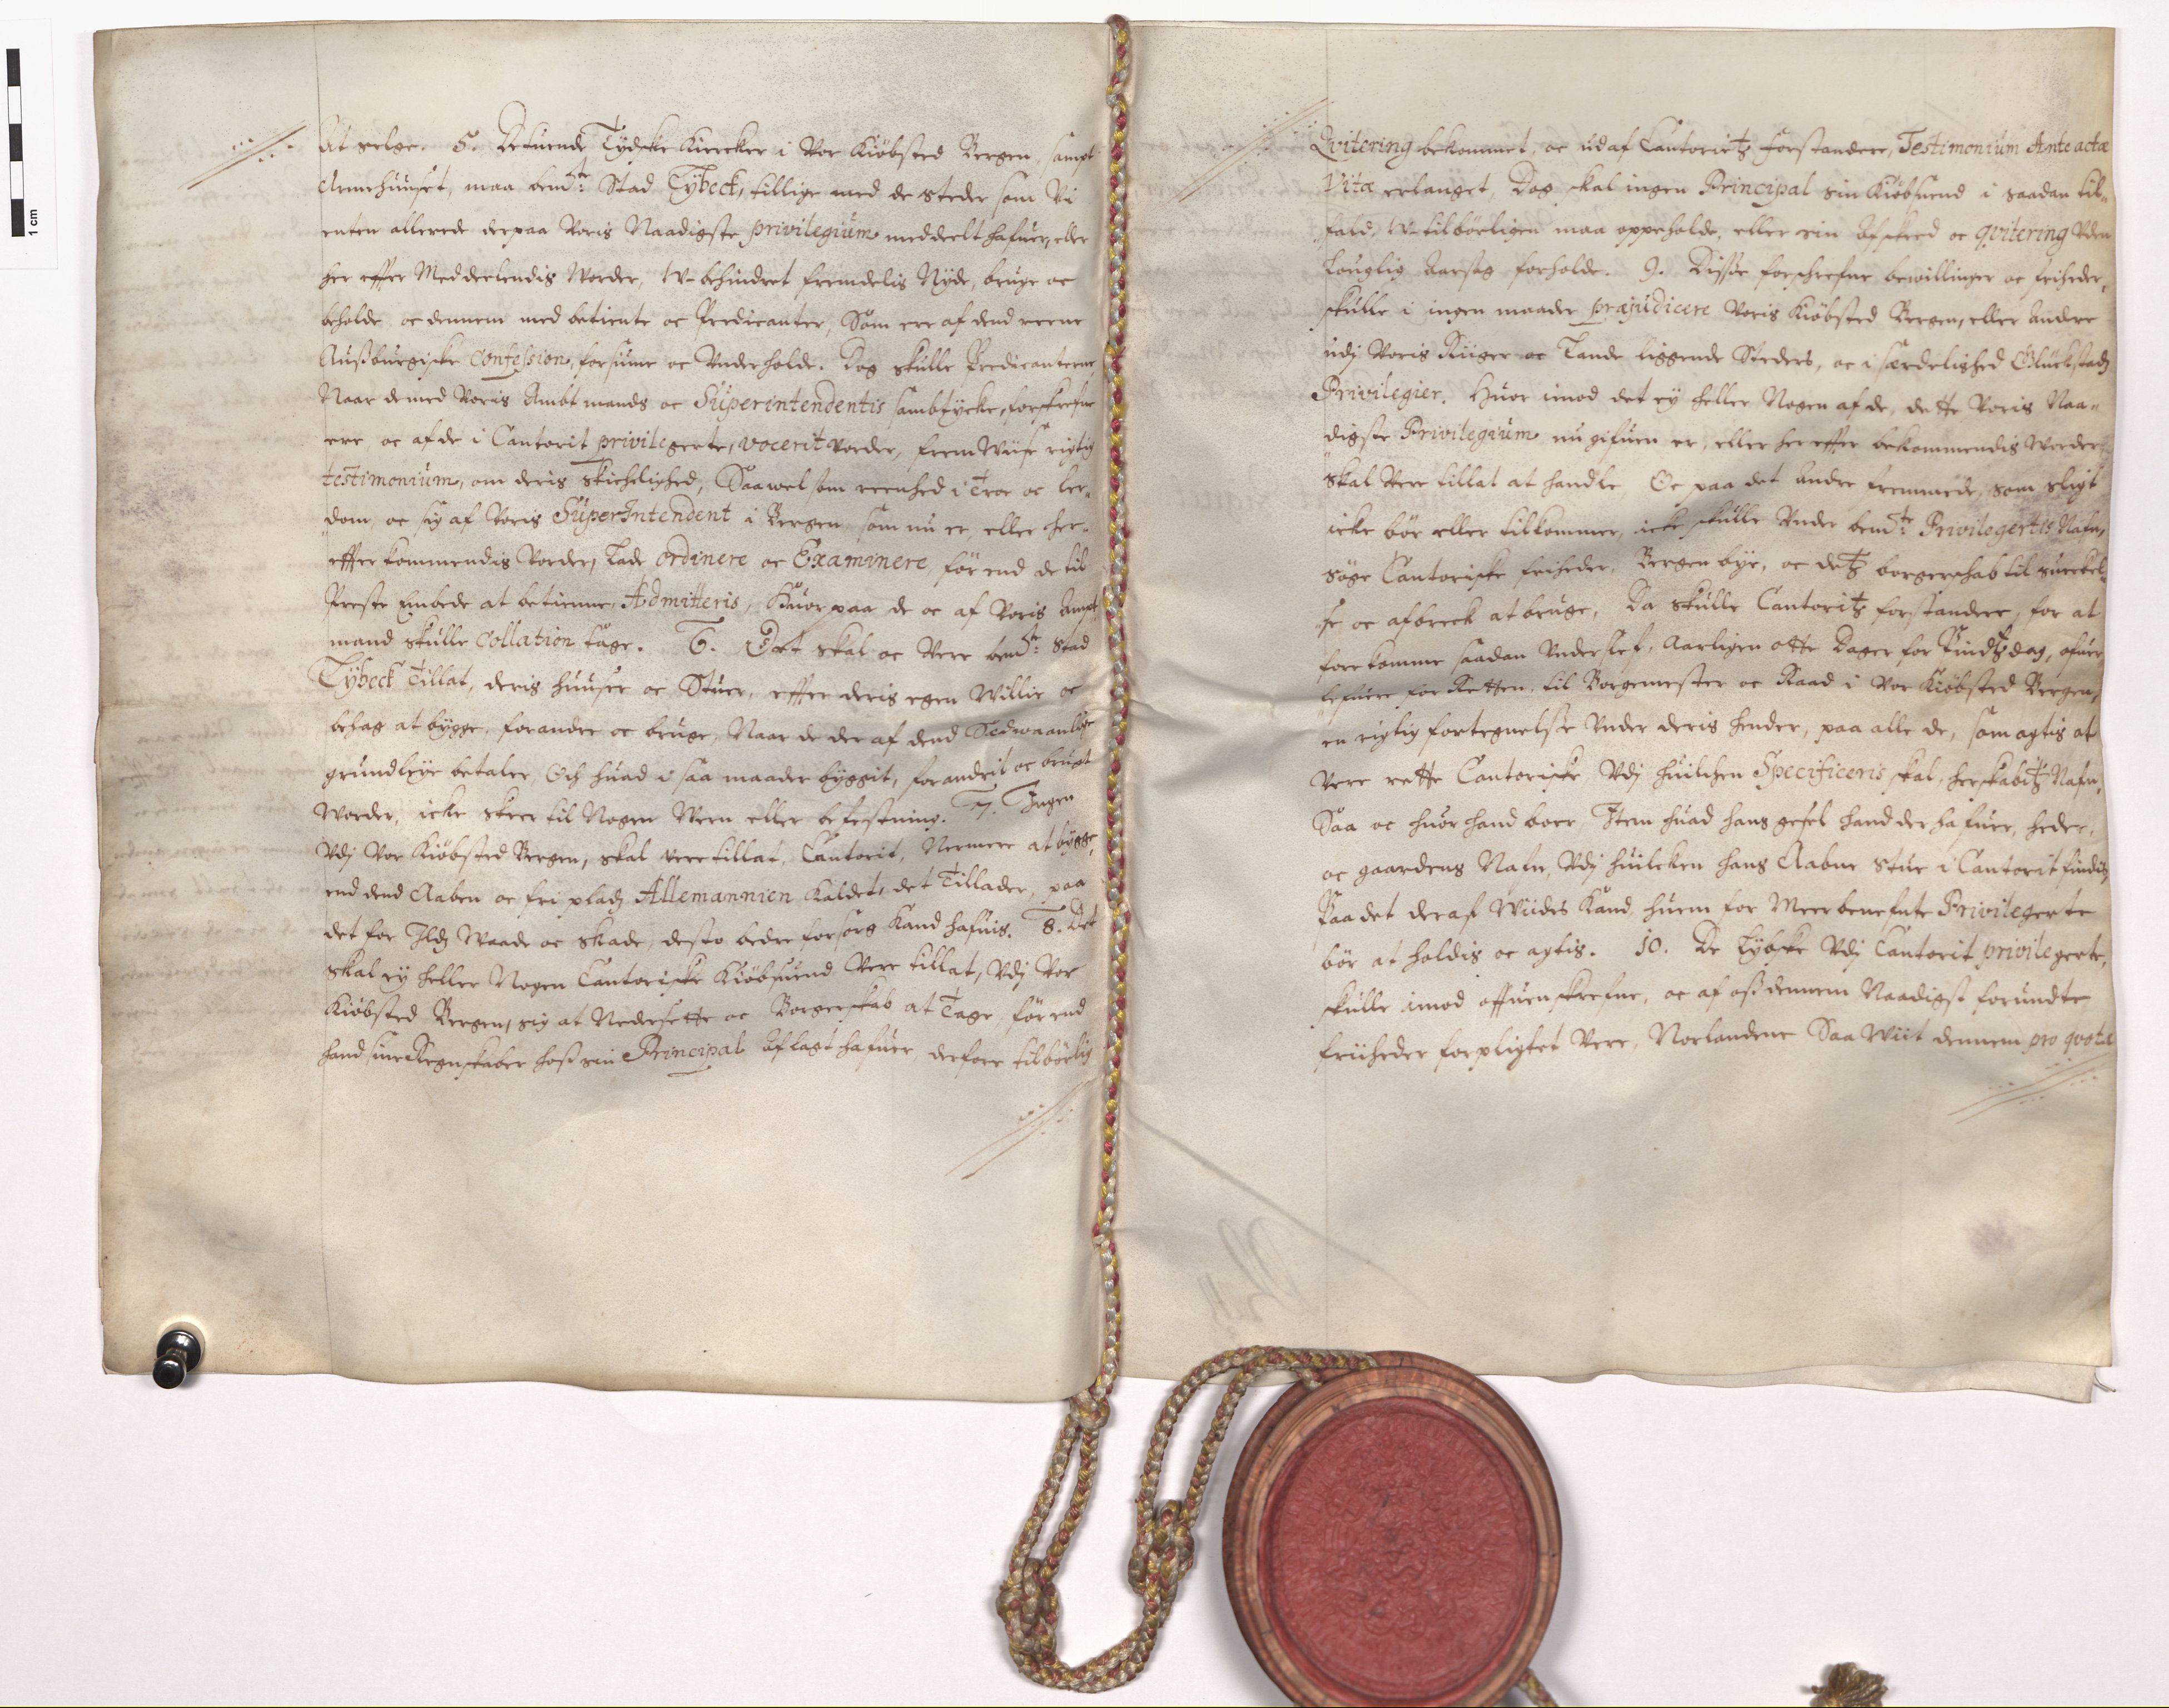 At selge. 5. De tuende Tydske Kiercker i Vor Kiöbsted Bergen, sampt
Armehuuset, maa bemte: Stad Lybeck, tillige med de steder som Vi
enten allerede derpaa Voris Naadigste privilegium meddeelt hafuer, eller
her effter Meddeelendis Vorder, W-behindret fremdelis Nyde, bruge oc
beholde, oc dennem med betiente oc Predicanter, Som ere af dend reene
Außburgiske Confession, forsiune oc Underholde. Dog skulle Predicanterne
Naar de med Voris Ambtmands oc Superintendentis sambtycke, forskrefne
ere, oc af de i Cantorit privilegerte, vocerit vorder, frem Wiise rigtig
testimonium, om deris Skickelighed, Saavel som reenhed i Troe oc ler-
dom, oc sig af Voris SuperIntendent i Bergen som nu er, eller her-
effter kommendis Vorder, Lade ordinere oc Examinere, för end de til
Preste Embede at betienne, Admitteris, Huor paa de oc af Voris Ampt-
mand skulle Collation tage. 6. Det skal oc Vere bemte: Stad
Lybeck Tillat, deris huuser oc Stuer, effter deris egen Willie oc
behag at bygge, forandre oc bruge, Naar de der af dend Sedwaanlige
grundleye betaler, Och huad i saa maader byggit, forandrit oc brugt
Vorder, icke skeer til Nogen Vern eller befestning. 7. Ingen
Udj Vor Kiöbsted Bergen, skal vere tillat, Cantorit, Nermere at bygge,
end dend Aaben oc fri pladz Allemannien Kaldet, det Tillader, paa
det for Ildz Waade oc skade, desto bedre forsorg Kand hafuis. 8. Det
skal ey heller Nogen Cantoriske Kiöbsuend Vere tillat, Udj Vor
Kiöbsted Bergen, sig at Nedersette oc Borgerskab at Tage för end
hand sine Regnskaber hoß sin Principal Aflagt hafuer, derfore tilbörlig
Qvitering bekommet, oc ud af Cantorietz forstandere, Testimonium Ante actæ
Vitæ erlanget, Dog skal ingen Principal sin Kiöbsuend i saadan til-
fald, W-tilbörligen maa oppeholde, eller sin Afskeed oc qvitering Uden
Louglig Aarsag forholde. 9. Disse forschrefne bewillinger oc friheder,
skulle i ingen maader præjudicere Voris Kiöbsted Bergen, eller Andre
udj Voris Riiger oc Lande liggende Steders, oc i særdelished Glückstadz
Privilegier. Huor imod det ey heller Nogen af de, dette Voris Naa-
digste Privilegium nu gifuen er, eller her effter bekommendis Vorder,
skal Vere tillat at handle, Oc paa det Andre fremmede, som sligt
icke bör eller tilkommer, icke skulle Under bemte: Privilegertis Nafn,
söge Cantoriske friheder, Bergen bye, oc detz borgerschab til
oc afbreck at bruge, Da skulle Cantoritz forstandere, for at
forekomme saadan Underslef, Aarligen otte Dager for Kindtzdag, ofuer-
lefuere for Retten, til Borgemester oc Raad i Vor Kiöbsted Bergen,
en rigtig fortegnelse Under deris hender, paa alle de, som agtis at
vere rette Cantoriske, Udj huilchen Specificeris skal, herskabitz Nafn,
Saa oc huor hand boer, Item huad hans gesel hand der hafuer, heder,
oc gaardens Nafn, Udj huilcken hans Aabne Stue i Cantorit findis,
Paa det deraf Wiides Kand, huem for Meer benefnte Privilegerte
bör at holdis oc agtis. 10. De Lybske Udj Cantorit privilegerte,
skulle imod offuenskrefne, oc af oß dennem Naadigst forundte
friiheder forpligtet Vere, Norlandene Saa Wiit dennem pro qvota